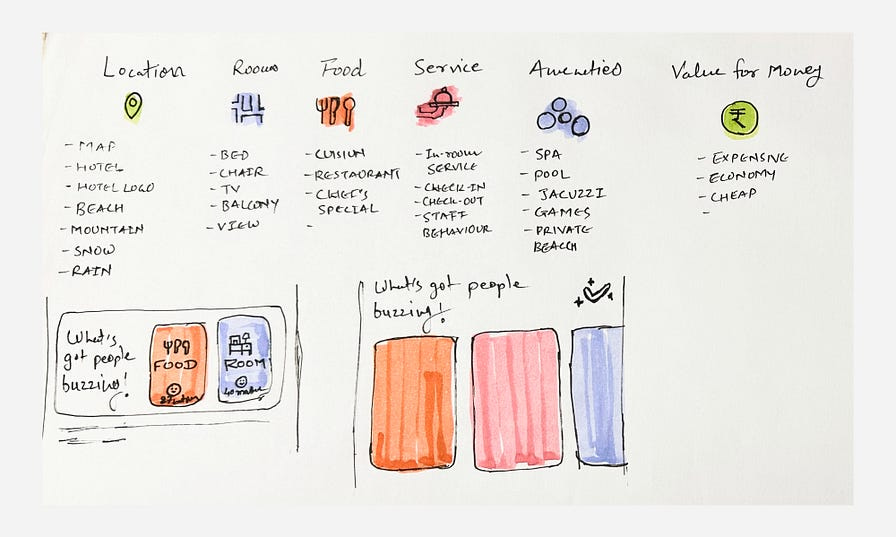 Location
- MAP
- HOTEL
- HOTEL LOGO
- BEACH
- MOUNTAIN
- SNOW
- RAIN
Rooms
- BED
- CHAIR
- TV
- BALCONY
- VIEW
Food
- CUISION
- RESTAURANT
- CHEF'S
SPECIAL
-
Service
- In-room
SERVICE
- CHECK-IN
- CHECK-OUT
- STAFF
BEHAVIOUR
Ameneties
- SPA
- POOL
- JACUZZI
- GAMES
- PRIVATE
BEACH
Value for Money
₹
- EXPENSIVE
- ECONOMY
- CHEAP
-
What's
got people
buzzing!
FOOD
ROOM
What's got people
buzzing!